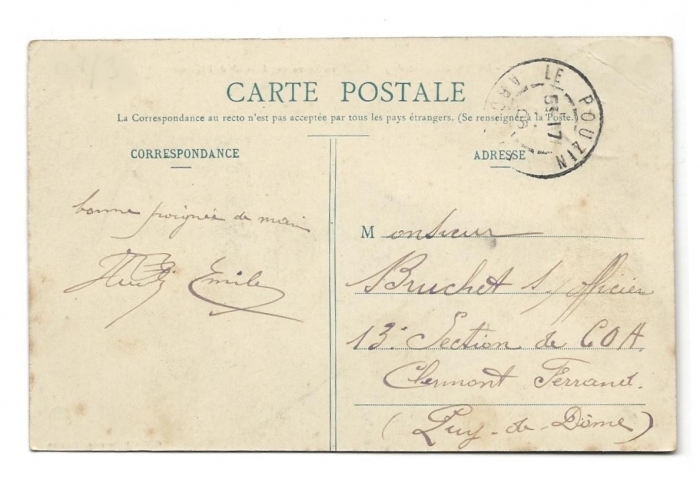 CARTE POSTALE
La Correspondance au recto n'est pas acceptée par tous les pays étrangers. (Se renseigner à la Poste.)
CORRESPONDANCE
ADRESSE
LE POUZIN
bonne poignée de main
Emile
Monsieur
Bruchet s/officier
13e Section de COA
Clermont Ferrand.
(Puy-de-Dôme)